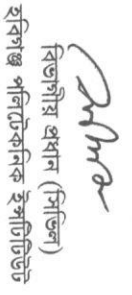 বিভাগীয় প্রধান (সিভিল)
হবিগঞ্জ পলিটেকনিক ইন্সটিটিউট